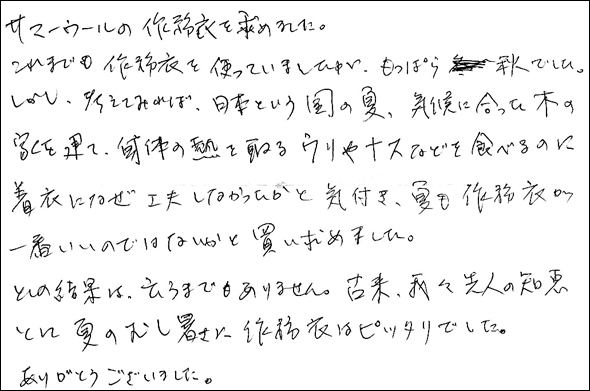 サマーウールの作務衣を求めました。
これまでも作務衣を使っていましたが、もっぱら秋でした。
しかし、考えてみれば、日本という国の夏、気候に合った木の
家を建て、身体の熱を取るウリやナスなどを食べるのに
着衣になぜ工夫しなかったかと気付き、夏も作務衣が
一番いいのではないかと買い求めました。
との結果は、云うまでもありません。古来、我々先人の知恵
とに夏のむし暑さに作務衣はピッタリでした。
ありがとうございました。